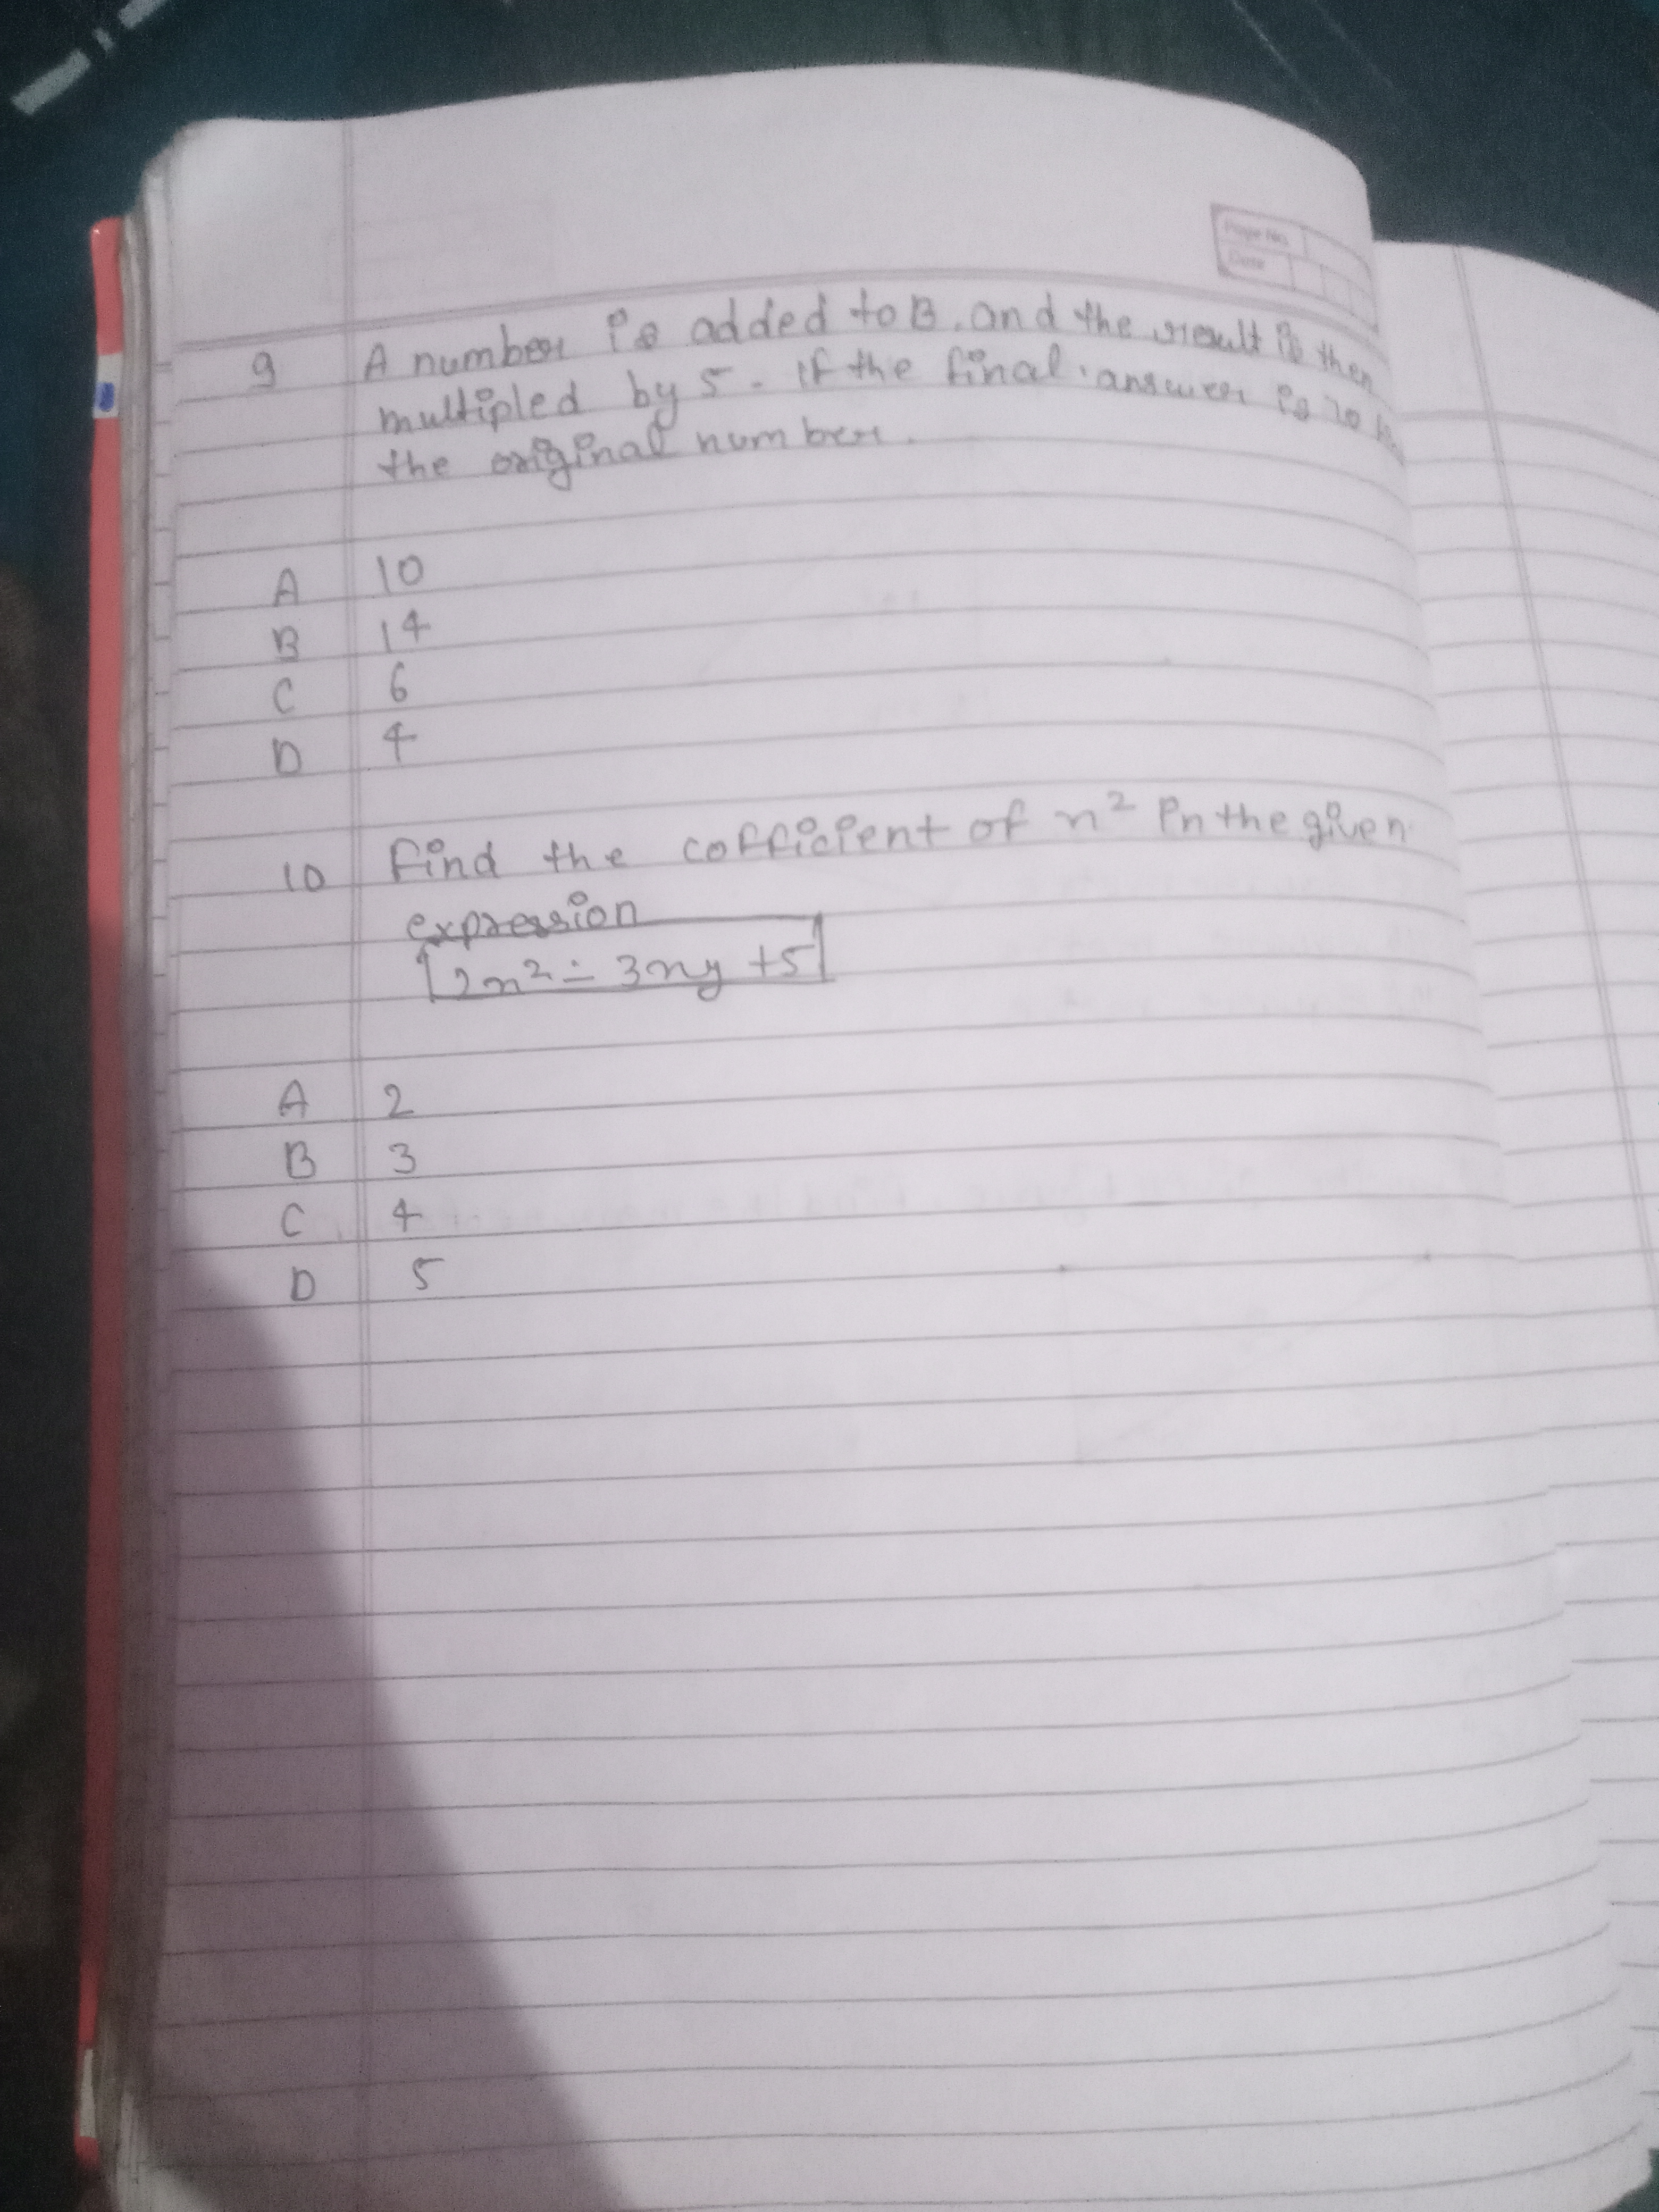 Page No.
Date
9 A number is added to B, and the result is then
multipled by 5. If the final answer is 70
the original number.
A 10
B 14
C 6
D 4
10 Find the cofficient of x² in the given
expression
2x² - 3xy + 5
A 2
B 3
C 4
D 5